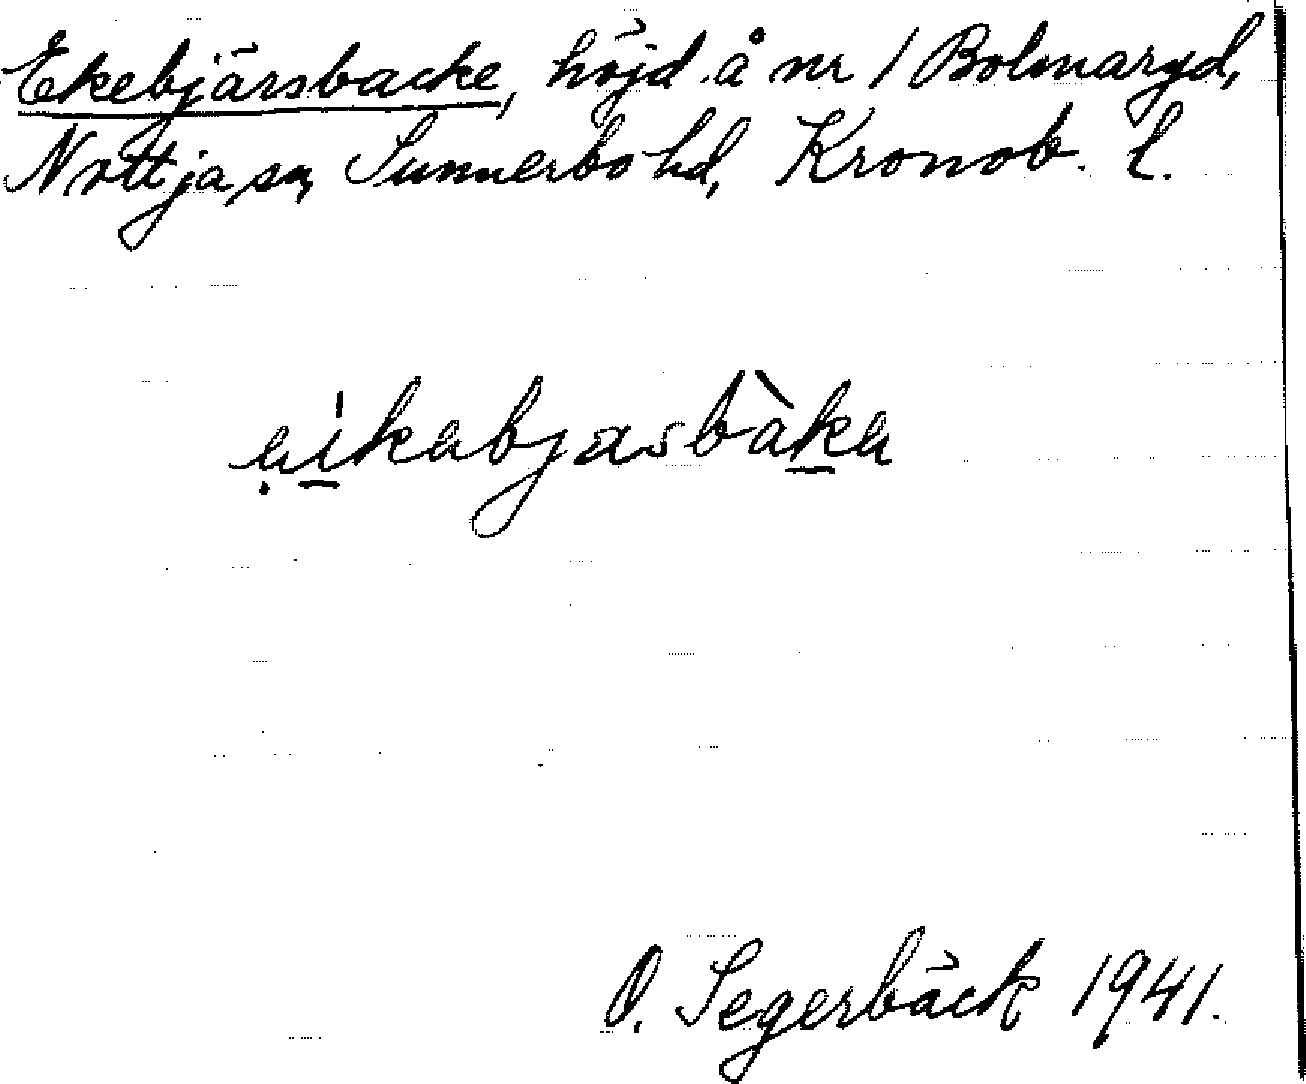 Ekebjärsbacke, höjd å nr 1 Bolmaryd,
Nöttja sn, Sunnerbo hd, Kronob. l.
aikabjasbàka
O. Segerbäck 1941.